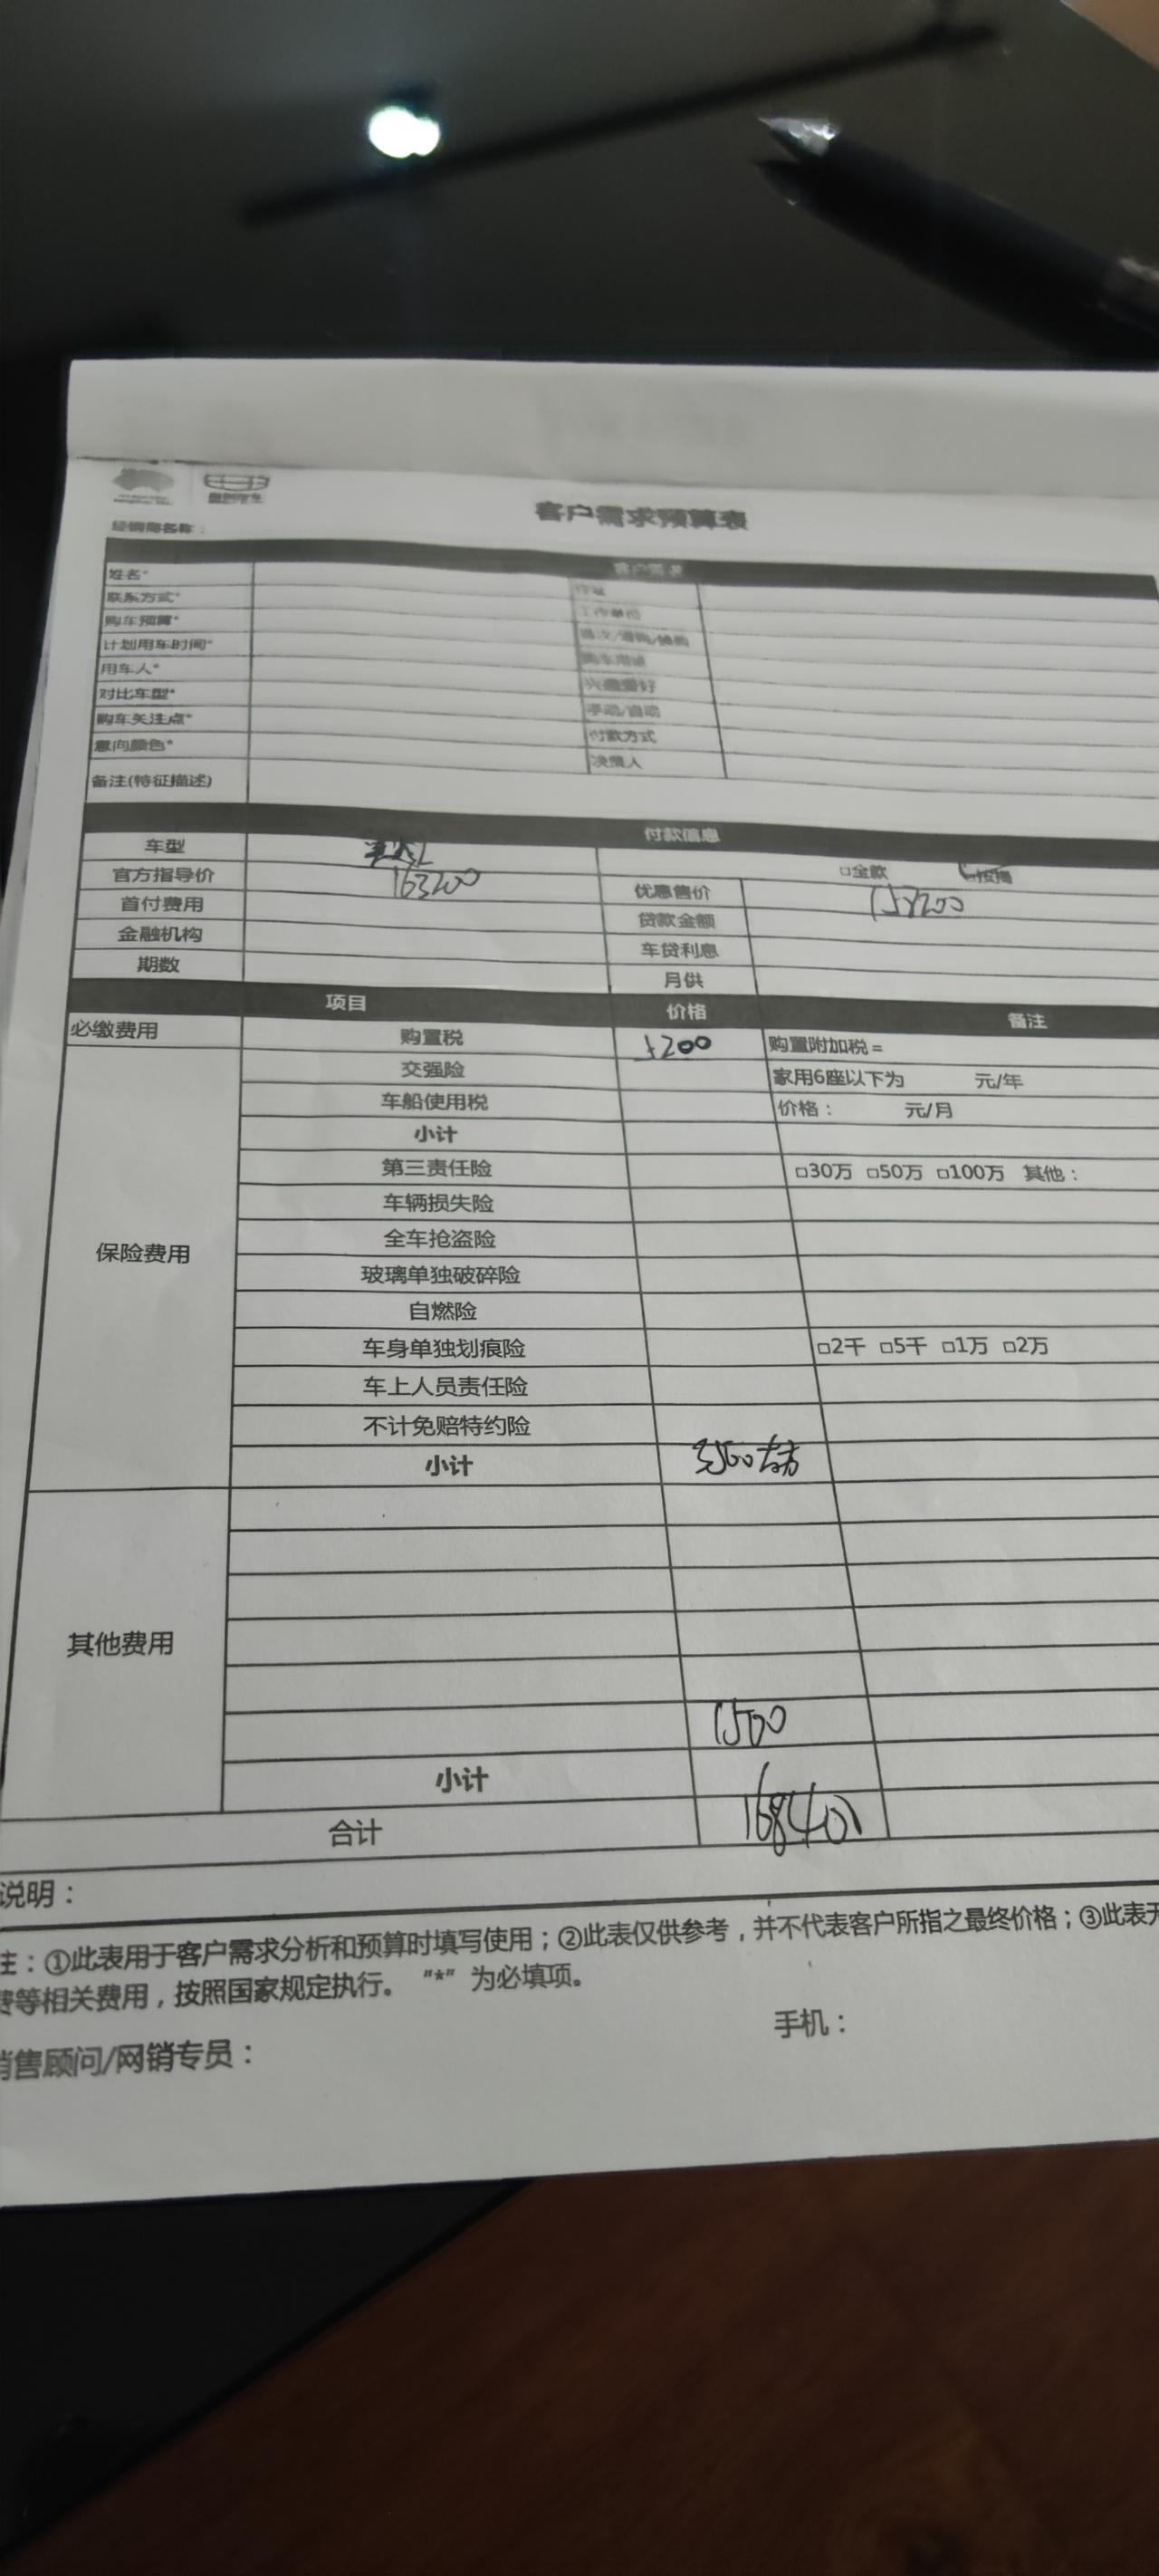 客户需求预算表
经销商名称：
客户需求
姓名*
联系方式* 工作单位
购车预算*
计划用车时间*
用车人* 兴趣爱好
对比车型* 手动/自动
购车关注点* 付款方式
意向颜色* 决策人
备注(特征描述)
付款信息
车型 □全款 □按揭
官方指导价 163200 优惠售价
首付费用 贷款金额
金融机构 车贷利息
期数 月供
项目 价格 备注
必缴费用 购置税 购置附加税 =
交强险 家用6座以下为 元/年
车船使用税 价格： 元/月
小计
第三责任险 □30万 □50万 □100万 其他：
车辆损失险
保险费用 全车抢盗险
玻璃单独破碎险
自燃险
车身单独划痕险 □2千 □5千 □1万 □2万
车上人员责任险
不计免赔特约险
小计 3500左右
其他费用
1500
小计
合计 168400
说明：
注：①此表用于客户需求分析和预算时填写使用；②此表仅供参考，并不代表客户所指之最终价格；③此表
费等相关费用，按照国家规定执行。“*”为必填项。
销售顾问/网销专员： 手机：